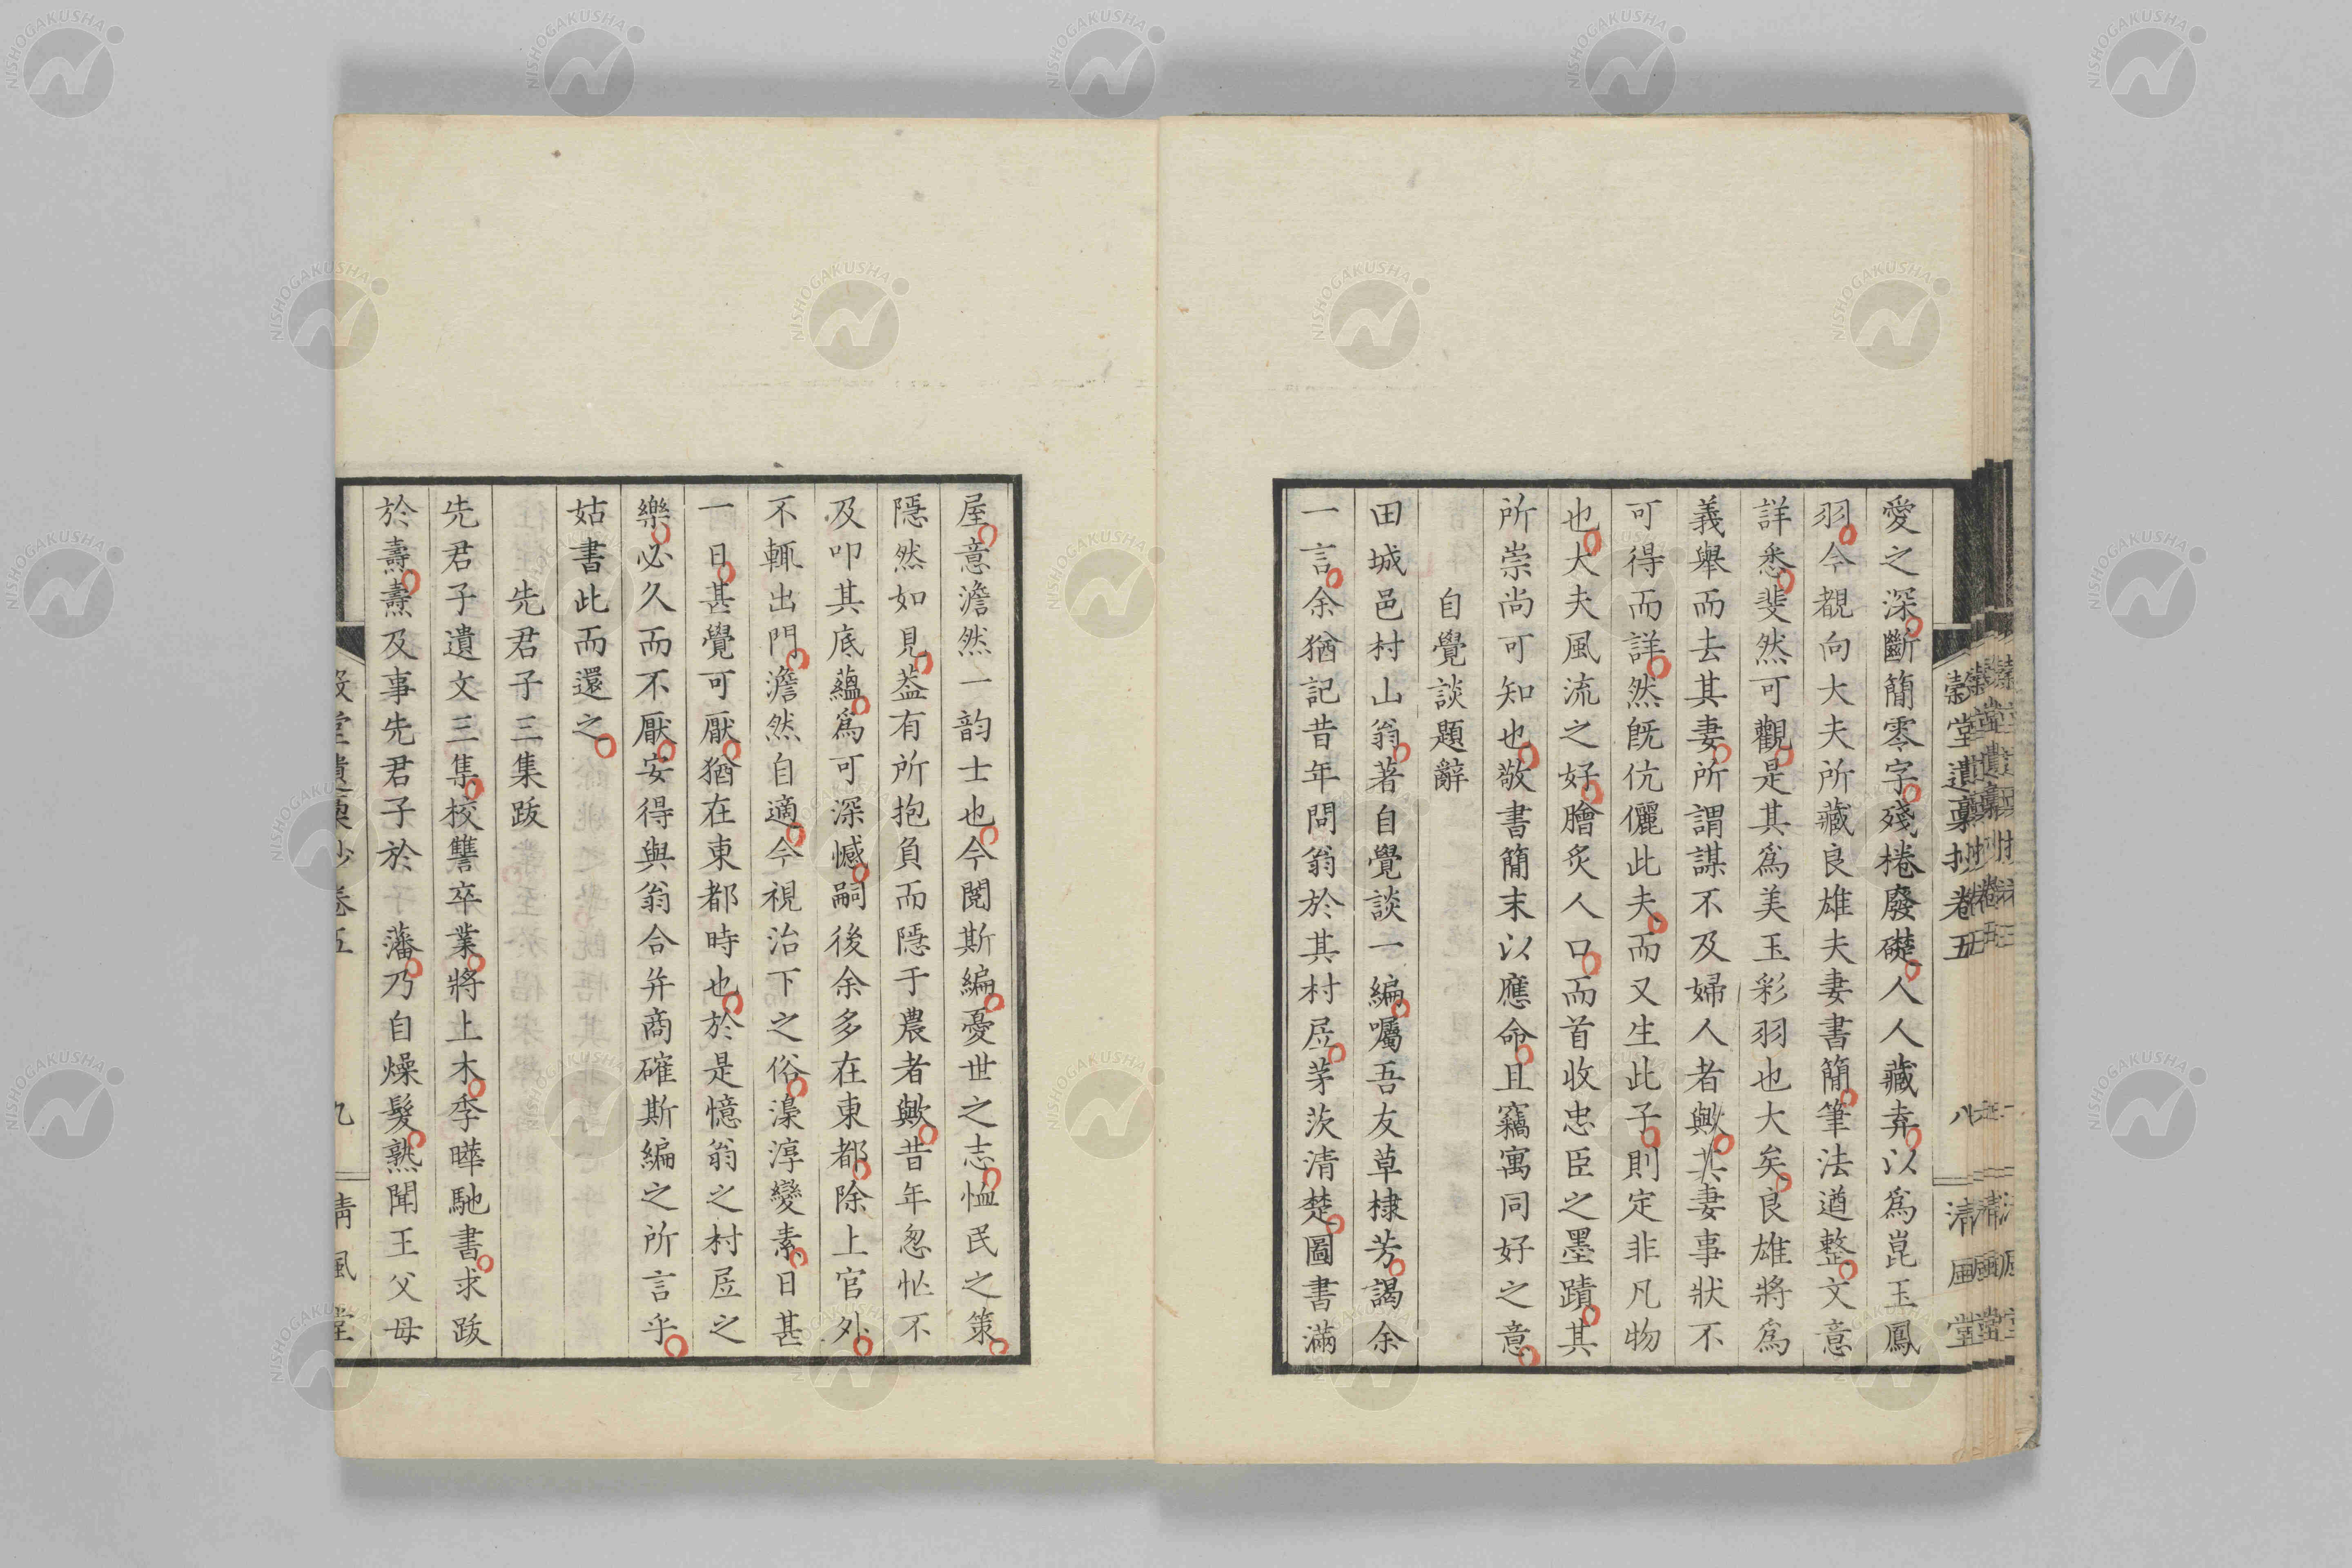 愛之深斷簡零字殘棬廢礎人人藏弆以爲崑玉鳳
羽今覩向大夫所藏良雄夫妻書簡筆法遒整文意
詳悉斐然可觀是其爲美玉彩羽也大矣良雄將爲
義舉而去其妻所謂謀不及婦人者歟其妻事狀不
可得而詳然旣伉儷此夫而又生此子則定非凡物
也大夫風流之好膾炙人口而首收忠臣之墨蹟其
所崇尚可知也敬書簡末以應命且竊寓同好之意
自覺談題辭
田城邑村山翁著自覺談一編囑吾友草棣芳謁余
一言余猶記昔年問翁於其村居茅茨清楚圖書滿
屋意澹然一韵士也今閱斯編憂世之志恤民之策
隱然如見葢有所抱負而隱于農者歟昔年怱怱不
及叩其底蘊爲可深憾嗣後余多在東都除上官外
不輒出門澹然自適今視治下之俗澡淳變素日甚
一日甚覺可厭猶在東都時也於是憶翁之村居之
樂必久而不厭安得與翁合并商確斯編之所言乎
姑書此而還之
先君子三集跋
先君子遺文三集校讐卒業將上木季曄馳書求跋
於燾燾及事先君子於藩乃自燥髮熟聞王父母
穀堂遺稾抄卷五
八
清風堂
九
清風堂
NISHOGAKUSHA